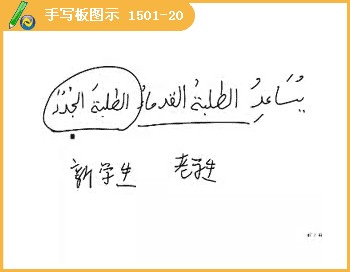 手写板图示 1501-20
يُسَاعِدُ الطلبةُ القدماءُ الطلبةَ الجُدُدَ
新学生 老学生